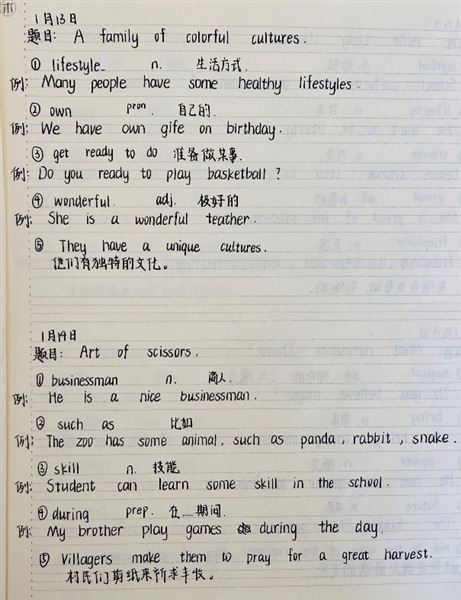 1月13日
题目: A family of colorful cultures.
① lifestyle n. 生活方式.
例: Many people have some healthy lifestyles.
② own pron. 自己的.
例: We have own gife on birthday.
③ get ready to do 准备做某事.
例: Do you ready to play basketball?
④ wonderful. adj. 极好的
例: She is a wonderful teacher.
⑤ They have a unique cultures.
他们有独特的文化。
1月14日
题目: Art of scissors.
① businessman n. 商人.
例: He is a nice businessman.
② such as 比如
例: The zoo has some animal, such as panda, rabbit, snake.
③ skill n. 技能
例: Student can learn some skill in the school.
④ during prep. 在……期间.
例: My brother play games during the day.
⑤ Villagers make them to pray for a great harvest.
村民们剪纸来祈求丰收。